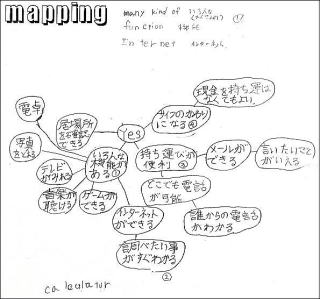 mapping
many kind of いろんな ①
function 機能
Internet
電卓
居場所
を確認
できる
Yes
になる④
現金を持ち運ば
なくてもよい
写真
をとる
いろんな
機能が
ある①
持ち運びが
便利③
メールが
できる
言いたいことが
いえる
テレビ
がみれる
音楽が
聴ける
ゲームが
できる
どこでも電話
が可能
インターネット
ができる
誰からの電話か
わかる
調べたい事
がすぐわかる
②
calculator